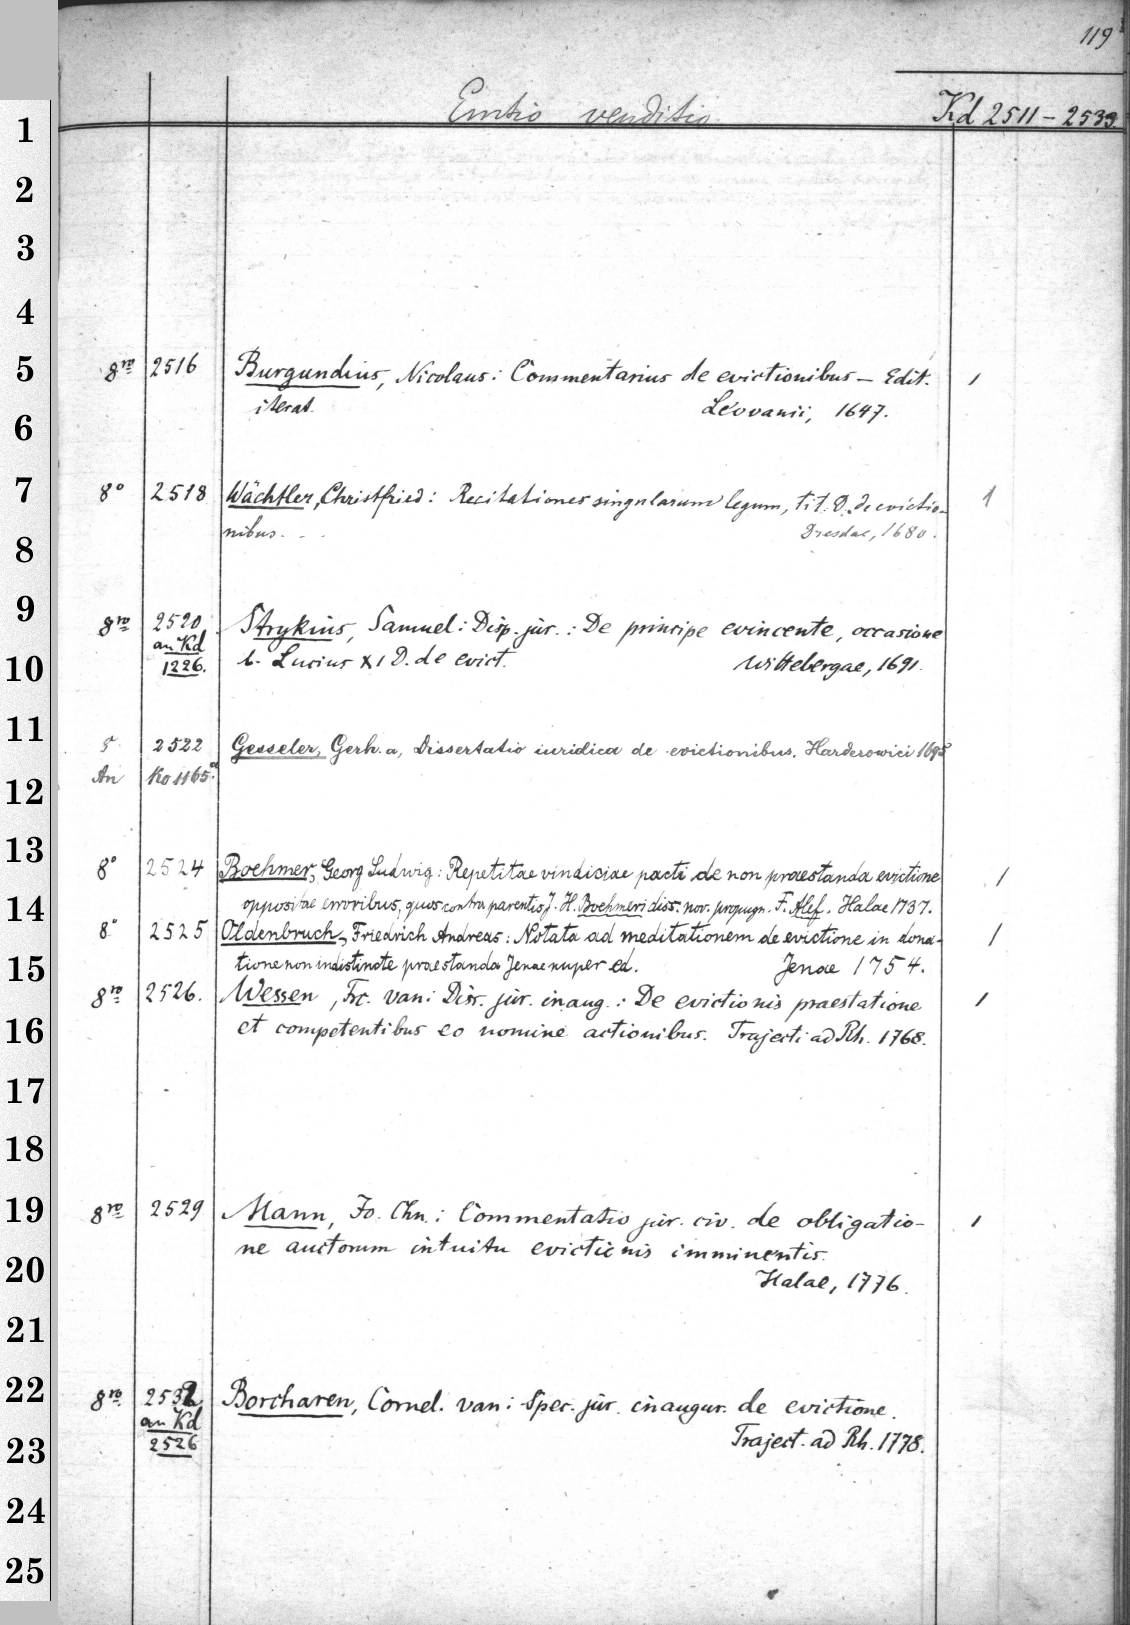 119
Emtio venditio
Kd 2511 - 2533
1
2
3
4
5 8ro 2516 Burgundius, Nicolaus: Commentarius de evictionibus — Edit. 1
iterat. Lovanii, 1647.
6
7 8° 2518 Wächtler, Christfried: Recitationes singularum legum, tit. D. de evictio- 1
nibus. Dresdae, 1680.
8
9 8ro 2520 Strykius, Samuel: Disp. jur.: De principe evincente, occasione
an Kd
10 1226. l. Lucius XI D. de evict. Wittebergae, 1691.
11 2522 Gesseler, Gerh. a, Dissertatio iuridica de evictionibus. Harderowici
An Ko 1165
12
13 8° 2524 Boehmer, Georg Ludwig: Repetitae vindiciae pacti de non praestanda evictione 1
14 oppositae erroribus, quos contra parentis J. H. Boehmeri diss. nov. propugn. F. Alef. Halae 1737.
8° 2525 Oldenbruch, Friedrich Andreas: Notata ad meditationem de evictione in dona- 1
15 tione non indistincte praestanda Jenae nuper ed. Jenae 1754.
8ro 2526. Wessen, Frc. van: Diss. jur. inaug.: De evictionis praestatione 1
16 et competentibus eo nomine actionibus. Trajecti ad Rh. 1768.
17
18
19 8ro 2529 Mann, Jo. Chn.: Commentatio jur. civ. de obligatio- 1
ne auctorum intuitu evictionis imminentis.
20 Halae, 1776.
21
22 8ro 2532 Borcharen, Cornel. van: Spec. jur. inaugur. de evictione.
an Kd
23 2526 Traject. ad Rh. 1778.
24
25